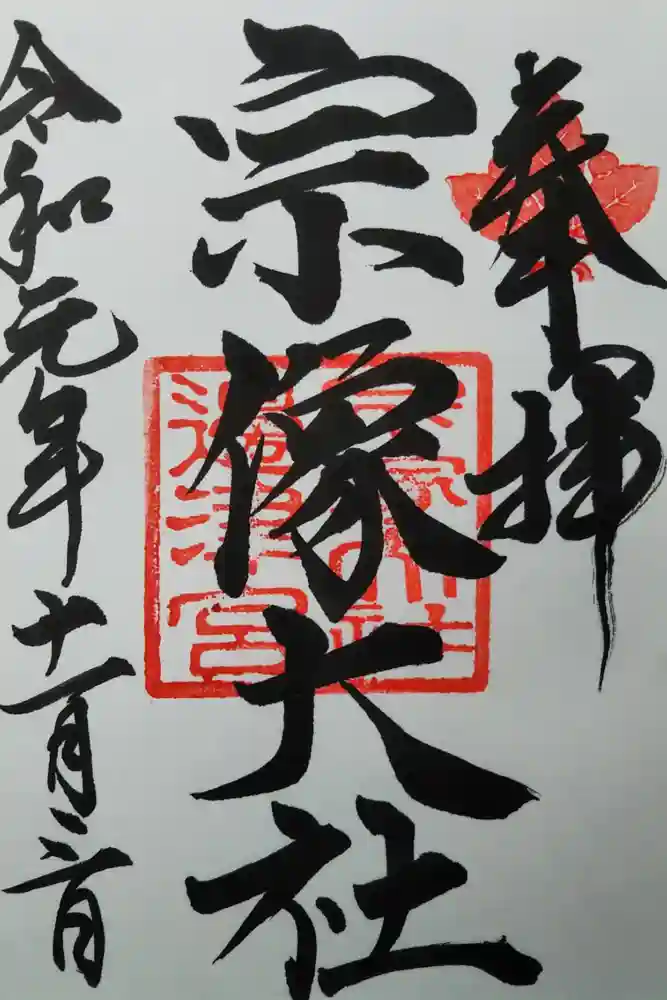 奉拝
宗像大社
宗像大社
邊津宮
令和元年十一月二日